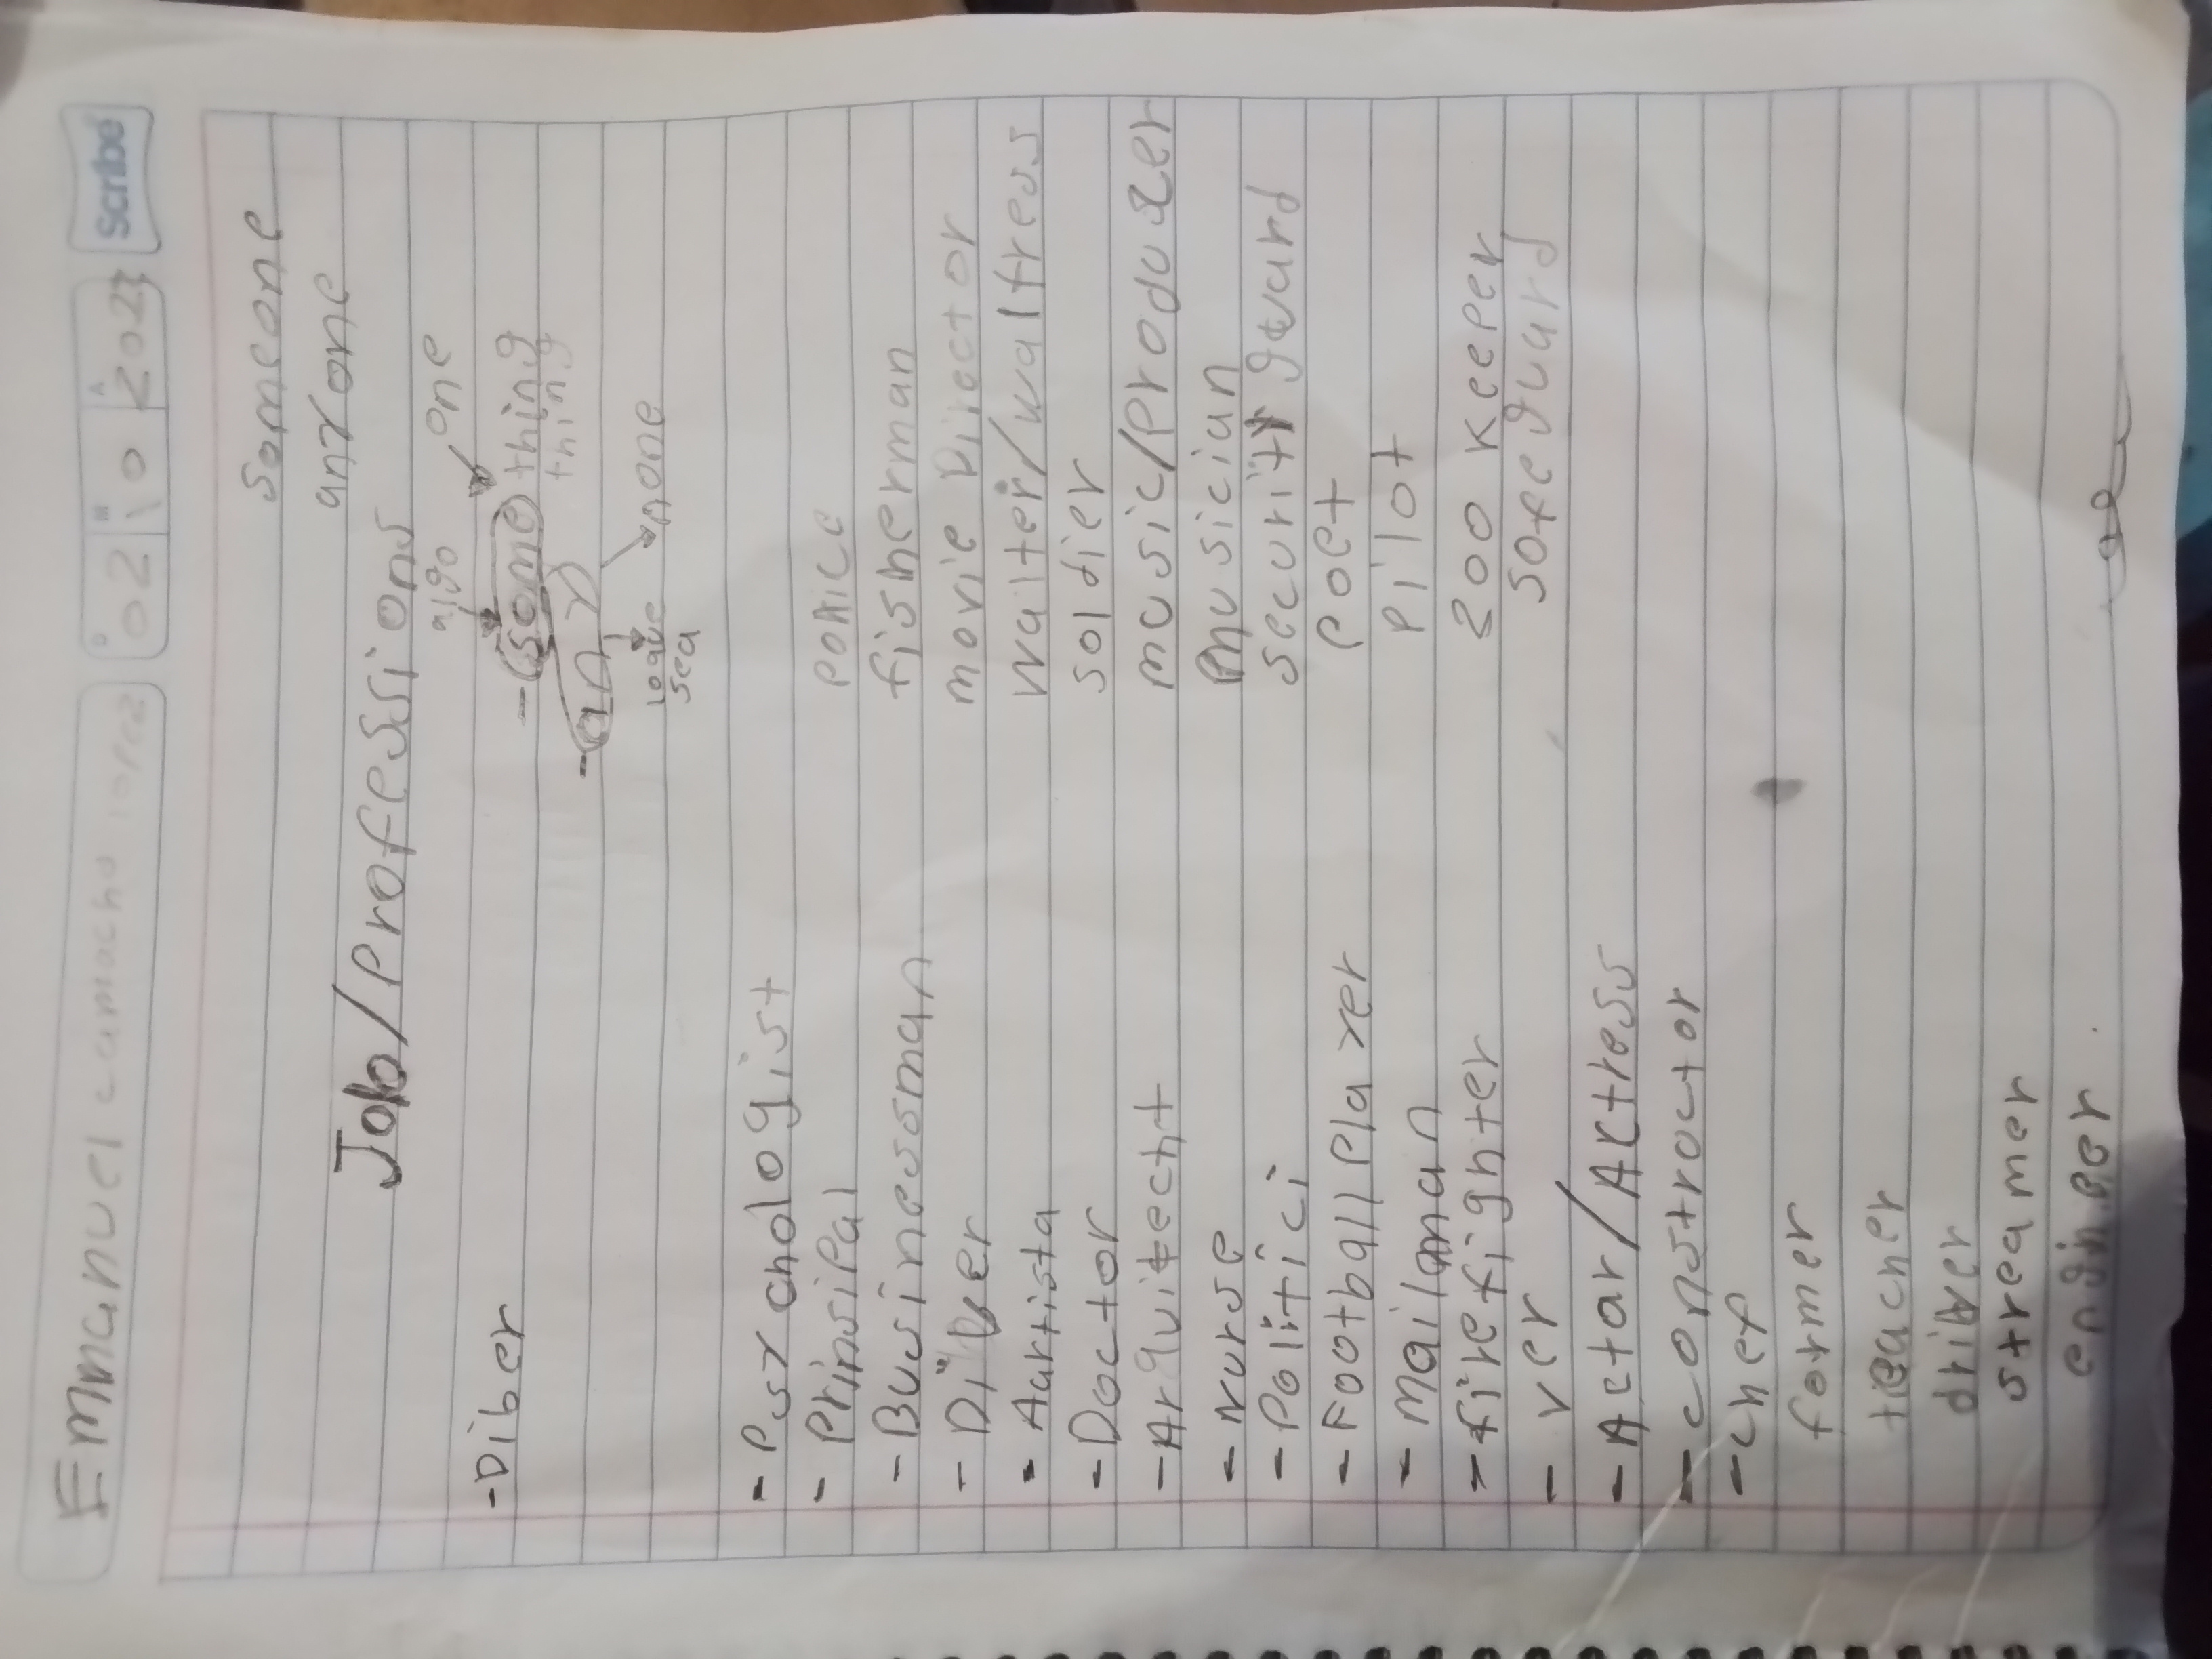 Emmanuel camacho 
D 02 M 10 A 2023 Scribe
someone
anyone
Job/Professions
algo one
-Diber -some thing
-any thing
lo que sea none
- Psychologist
- Prinsipal police
- Businessman fisherman
- Diver movie Director
- Aartista waiter/waitress
- Doctor soldier
- Arquitecht music/Producer
- Nurse Musician
- Politici security guard
- Football Player poet
- Mailman Pilot
- firefighter zoo keeper
- ver safeguard
- Actor/Actress
- constructor
- chef
farmer
teacher
driver
streamer
engineer